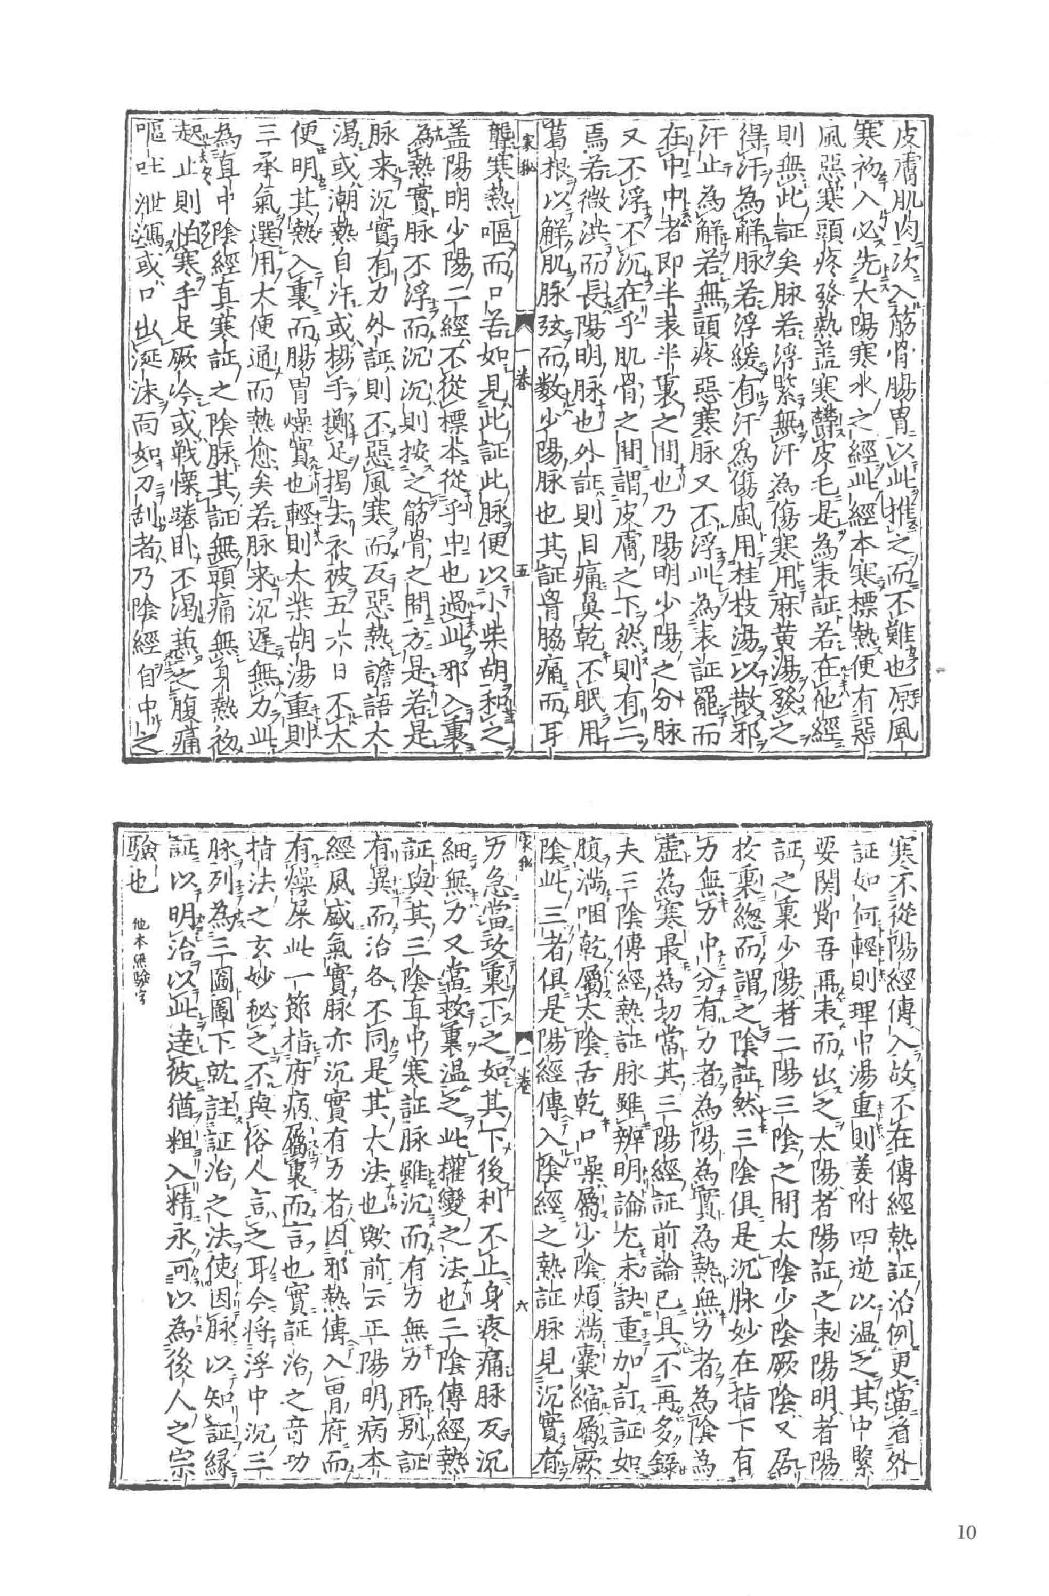 皮膚肌肉次入筋骨腸胃以此推之而不難也原風
寒初入必先太陽寒水之經此經本寒標熱便有惡
風惡寒頭疼發熱盖寒欝皮毛是為表証若在他經
則無此証矣脉若浮緊無汗為傷寒用麻黄湯發之
得汗為解脉若浮緩有汗為傷風用桂枝湯以散邪
汗止為解若無頭疼惡寒脉又不浮此為表証罷而
在中中者即半表半裏之間也乃陽明少陽之分脉
又不浮不沉在乎肌骨之間謂皮膚之下然則有二
焉若微洪而長陽明脉也外証則目痛鼻乾不眠用
葛根以解肌脉弦而数少陽脉也其証胷脇痛而耳
家秘 一卷 五
聾寒熱嘔而口苦如見此証此脉便以小柴胡和之
盖陽明少陽二經不從標本從乎中也過此邪入裏
為熱實脉不浮而沉沉則按之筋骨之間方是若是
脉来沉實有力外証則不惡風寒而反惡熱譫語大
渇或潮熱自汗或揚手擲足揭去衣被五六日不大
便明其熱入裏而腸胃燥實也輕則大柴胡湯重則
三承氣選用大便通而熱愈矣若脉来沉遲無力此
為直中陰經真寒証之陰脉其証無頭痛無身熱初
起止則怕寒手足厥冷或戰慄踡卧不渇兼之腹痛
嘔吐泄瀉或口出涎沫面如刀刮者乃陰經自中之
寒不從陽經傳入故不在傳經熱証治例更當看外
証如何輕則理中湯重則姜附四逆以温之其中緊
要関節吾再表而出之太陽者陽証之表陽明者陽
証之裏少陽者二陽三陰之間太陰少陰厥陰又居
於裏總而謂之陰証然三陰俱是沉脉妙在指下有
力無力中分有力者為陽為實為熱無力者為陰為
虚為寒最為切當其三陽經証前論已具不再多錄
夫三陰傳經熱証脉雖辨明論尤未訣重加訂証如
腹滿咽乾屬太陰舌乾口噪屬少陰煩滿囊縮屬厥
陰此三者俱是陽經傳入陰經之熱証脉見沉實有
家秘 一卷 六
力急當攻裏下之如其下後利不止身疼痛脉反沉
細無力又當救裏温之此權變之法也三陰傳經熱
証與其三陰直中寒証脉雖沉而有力無力所別証
有異而治各不同是其大法也歟前云正陽明病本
經風盛氣實脉亦沉實有力者因邪熱傳入胃府而
有燥屎此一節指府病屬裏而言也實証治之竒功
指法之玄妙秘之不與俗人言之耳今將浮中沉三
脉列為三圖圖下就註証治之法使因脉以知証縁
証以明治以此達彼猶粗入精永可以為後人之宗
驗也 他本無驗字
10